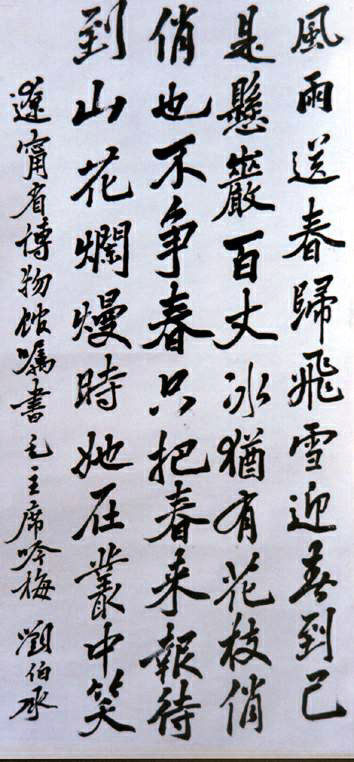 風雨送春歸飛雪迎春到已
是懸巖百丈冰猶有花枝俏
俏也不争春只把春来報待
到山花爛熳時她在叢中笑
遼甯省博物馆嘱書毛主席咏梅 劉伯承